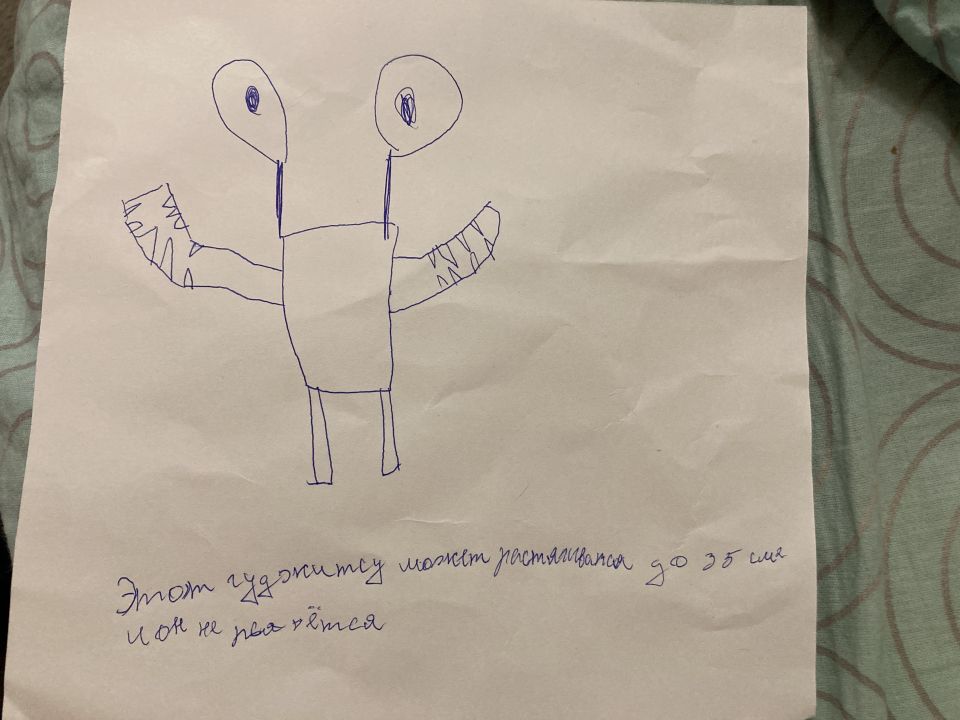 Этот гуджитсу может растягиваися до 35 см
и он не рвётся